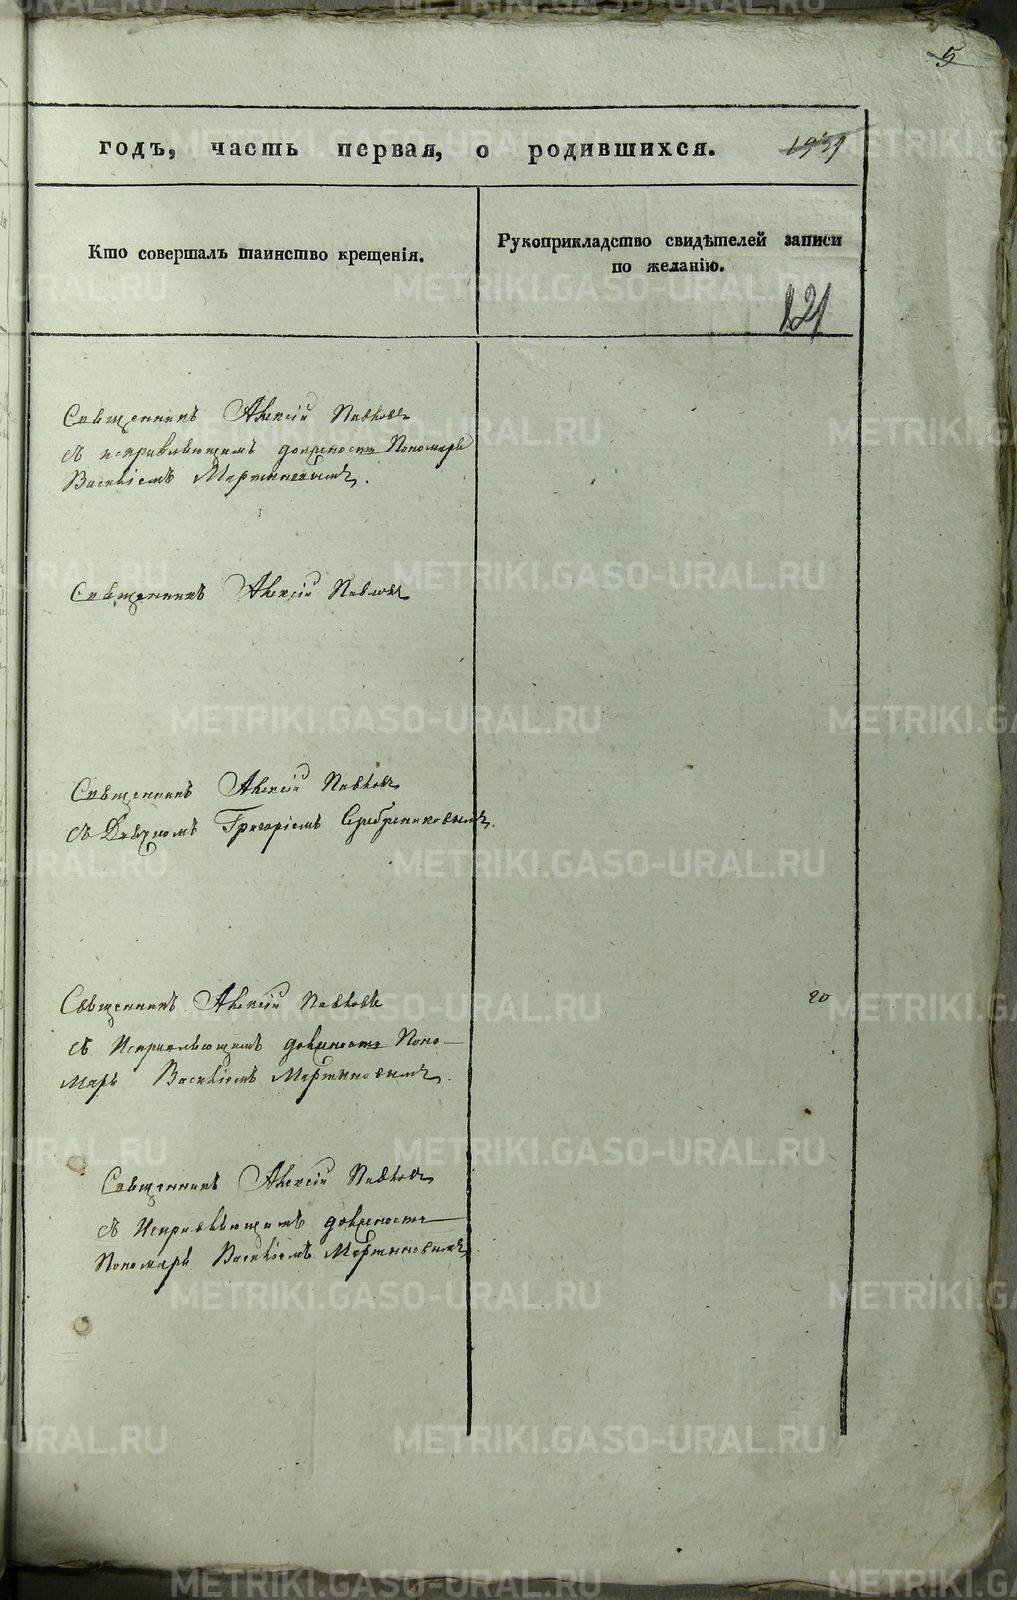 5
годъ, часть первая, о родившихся.
Кто совершалъ таинство крещенія.
Рукоприкладство свидѣтелей записи
по желанію.
121
Священникъ Алексій Павловъ
съ исправляющимъ должность Пономаря
Василіемъ Мартыновымъ.
Священникъ Алексій Павловъ
Священникъ Алексій Павловъ
съ Діакономъ Григоріемъ Серебрениковымъ.
Священникъ Алексій Павловъ
съ Исправляющимъ должность Поно-
маря Василіемъ Мартыновымъ.
20
Священникъ Алексій Павловъ
съ Исправляющимъ должность
Пономаря Василіемъ Мартыновымъ.
METRIKI.GASO-URAL.RU